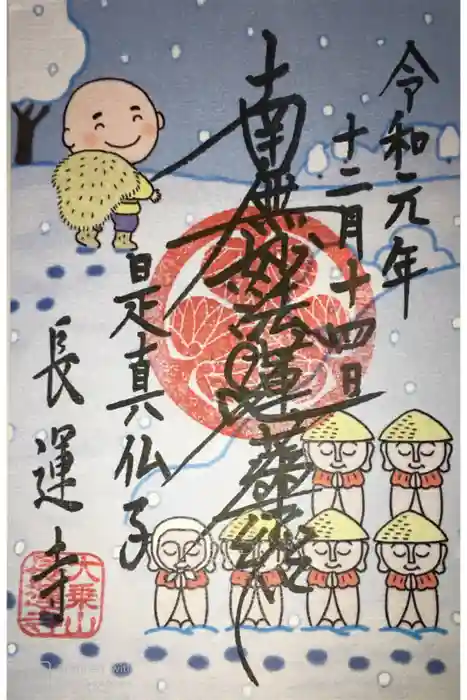 令和元年
十二月十四日
南無妙法蓮華経
是真仏子
長運寺
大乗山